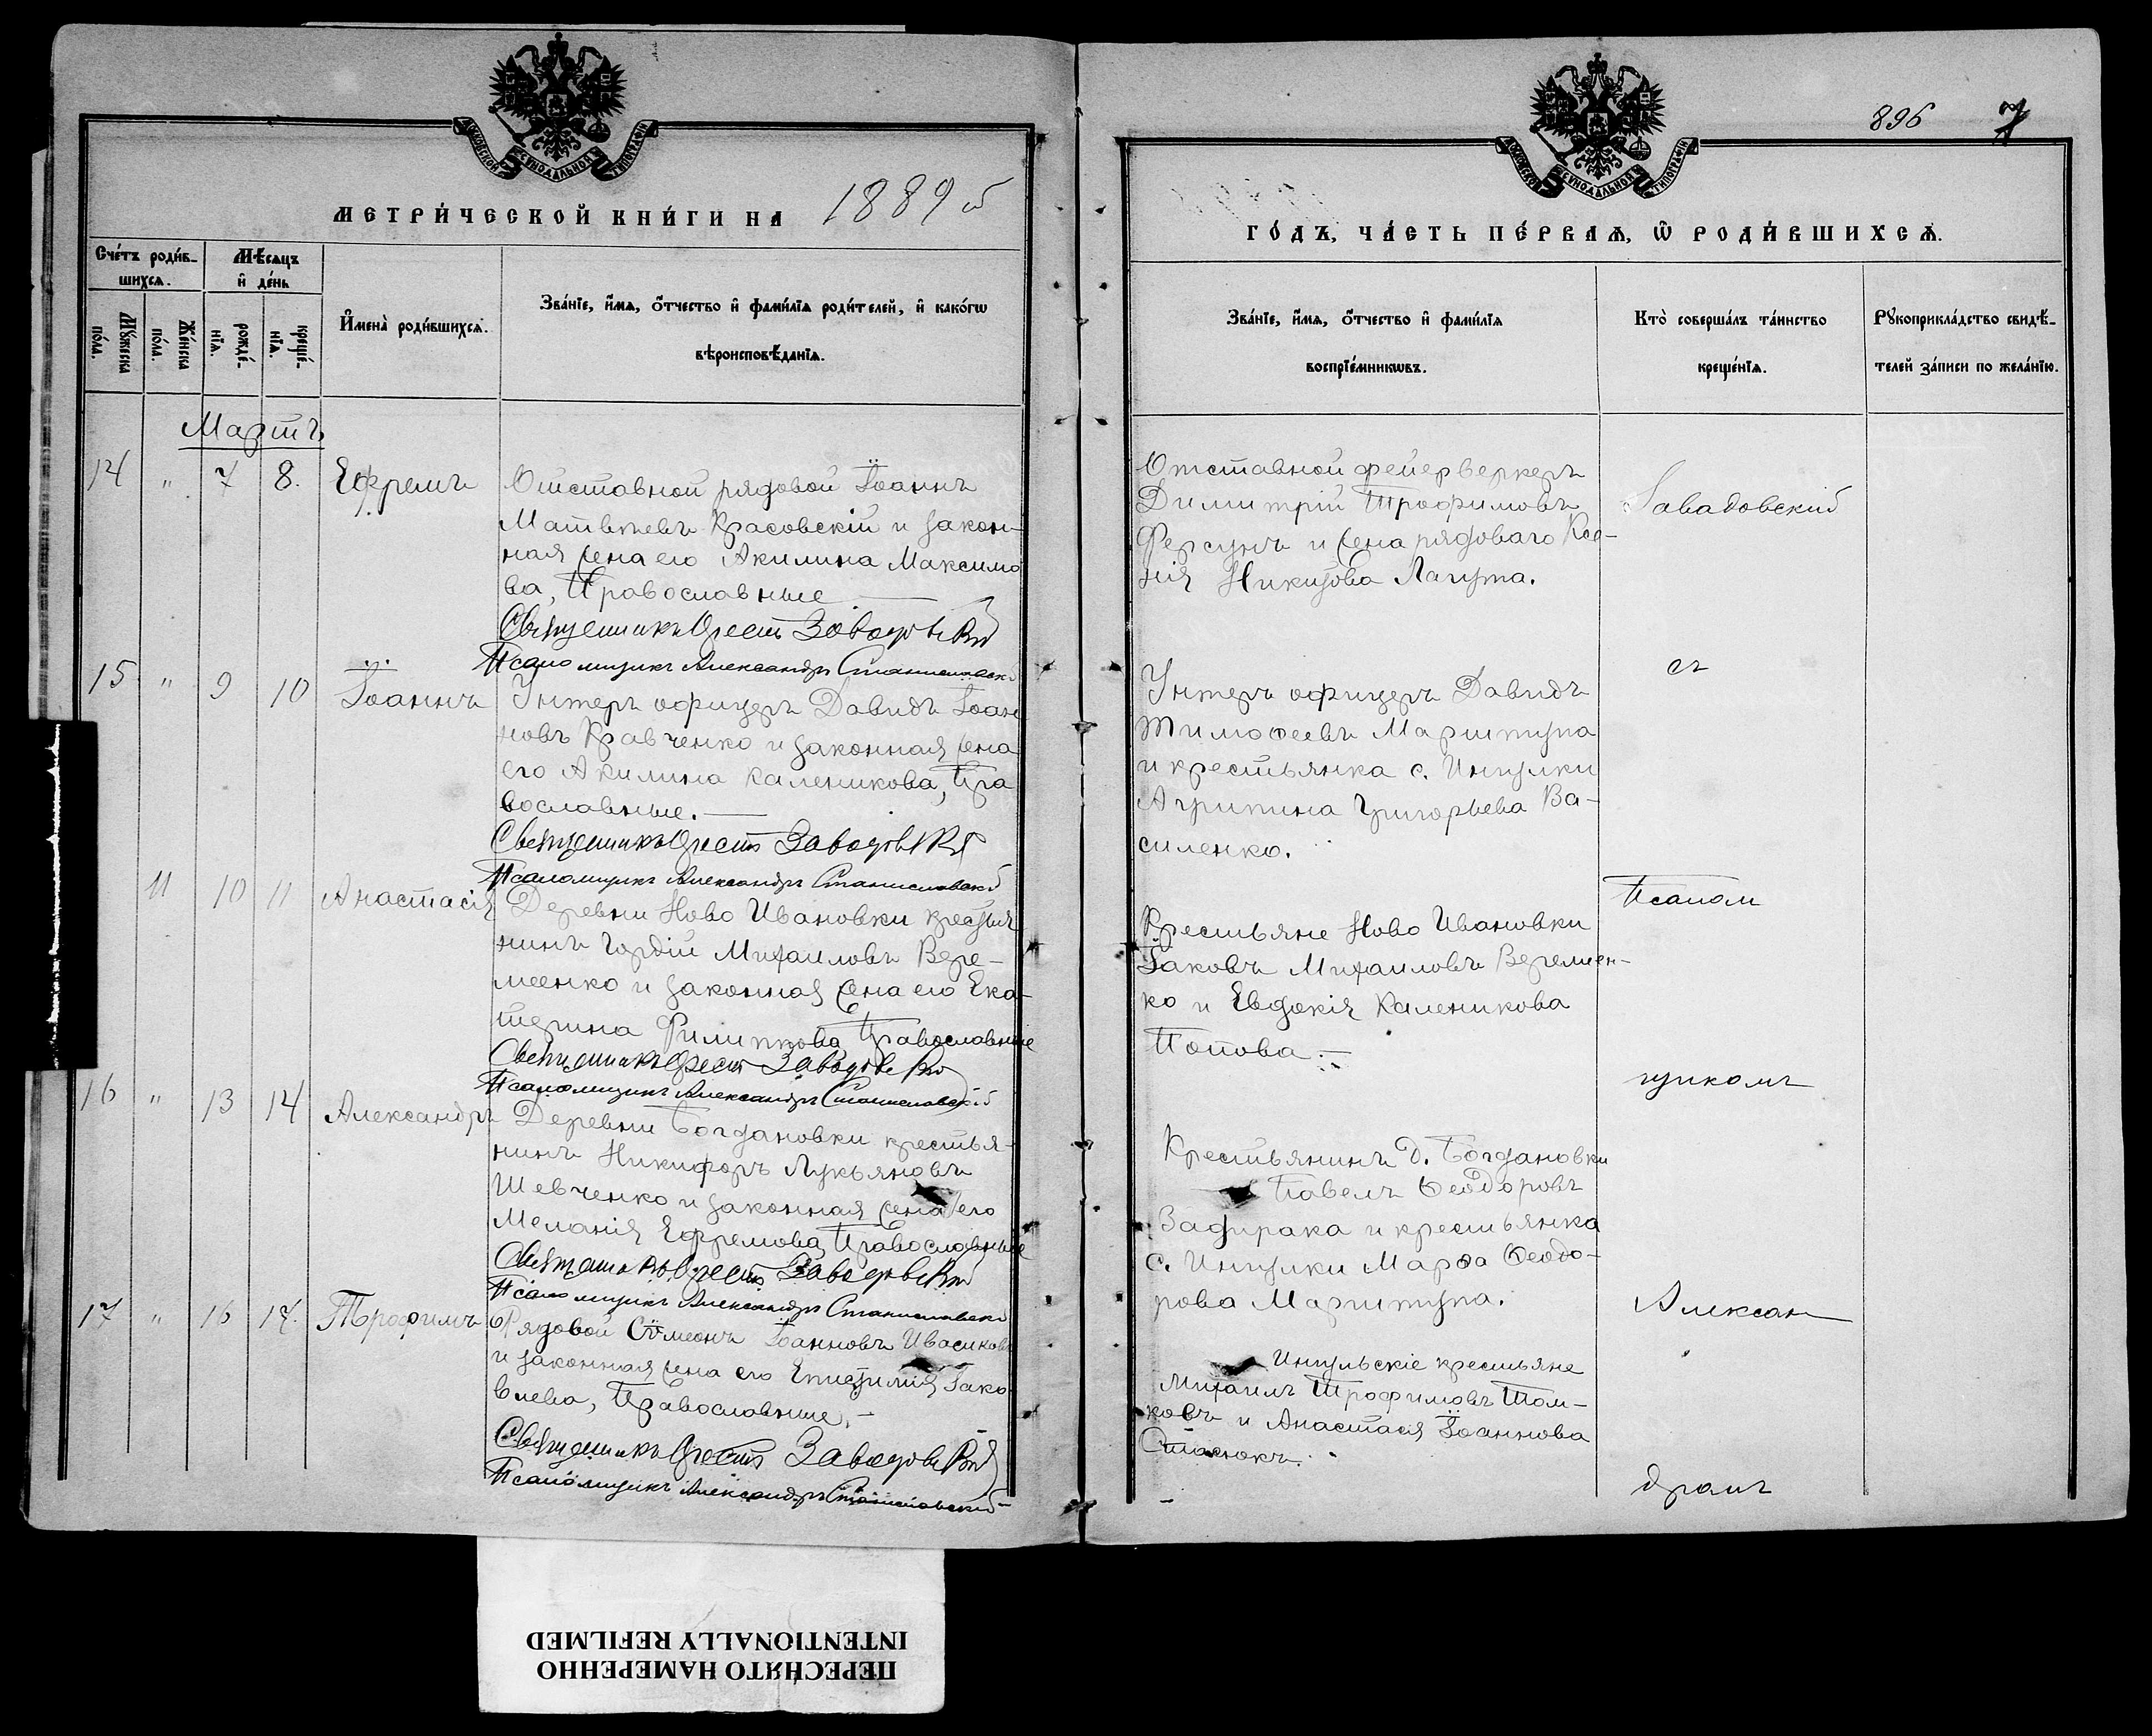 МОСКОВСКОЙ СѴНОДАЛЬНОЙ ТИПОГРАФІИ
МЕТРИ́ЧЕСКОЙ КНИ́ГИ НА 1889й
Сче́тъ роди́в-
шихсѧ.
Мѣ́сѧцъ
и҆ де́нь
Мꙋ́жеска по́ла.
Же́нска по́ла.
рожде́-нїѧ.
креще́-нїѧ.
И҆мена̀ роди́вшихсѧ.
Зва́нїе, и҆́мѧ, ѻ҆́тчество и҆ фами́лїѧ роди́телей, и҆ како́гѡ
вѣроисповѣ́данїѧ.
Мартъ
14 " 7 8. Ефремъ Отставной рядовой Іоаннъ
Матвѣевъ Красовскій и закон-
ная жена его Акилина Максимо
ва, Православные
Священникъ Орестъ Заводовскій
Псаломщикъ Александръ Станиславскій
15 " 9 10 Іоаннъ Унтеръ офицеръ Давидъ Іоан
новъ Кравченко и законная жена
его Акилина Каленикова, Пра
вославные.
Священникъ Орестъ Заводовскій
Псаломщикъ Александръ Станиславскій
11 10 11 Анастасія Деревни Ново Ивановки крестья
нинъ Гордій Михаиловъ Вере-
меенко и законная жена его Ека-
терина Филиппова Православные
Священникъ Орестъ Заводовскій
Псаломщикъ Александръ Станиславскій
16 " 13 14 Александръ Деревни Богдановки крестья-
нинъ Никифоръ Лукьяновъ
Шевченко и законная жена его
Меланія Ефремова, Православные
Священникъ Орестъ Заводовскій
Псаломщикъ Александръ Станиславскій
17 " 16 17. Трофимъ Рядовой Сѵмеонъ Іоанновъ Ивасиковъ
и законная жена его Епистимія Іако
влева, Православные.
Священникъ Орестъ Заводовскій
Псаломщикъ Александръ Станиславскій
896 7
МОСКОВСКОЙ СѴНОДАЛЬНОЙ ТИПОГРАФІИ
ГО́ДЪ, ЧА́СТЬ ПЕ́РВАѦ, Ѡ҆ РОДИ́ВШИХСѦ.
Зва́нїе, и҆́мѧ, ѻ҆́тчество и҆ фами́лїѧ
воспрїе́мникѡвъ.
Кто̀ соверша́лъ та́инство
креще́нїѧ.
Рꙋкоприкла́дство свидѣ́-
телей за́писи по жела́нїю.
Отставной фейерверкеръ
Димитрій Трофимовъ
Ферсунъ и жена рядоваго Ксе-
нія Никитова Лагута.
Завадовскій
съ
Унтеръ офицеръ Давидъ
Тимофеевъ Маритупа
и крестьянка с. Ингулки
Агрипина Григорьева Ва-
силенко.
Псалом
Крестьяне Ново Ивановки
Іаковъ Михаиловъ Веремиен-
ко и Евдокія Каленикова
Попова.
щикомъ
Крестьянинъ д. Богдановки
Павелъ Ѳеодоровъ
Задирака и крестьянка
с. Ингулки Марѳа Ѳеодо-
рова Маритупа.
Алексан
Ингульскіе крестьяне
Михаилъ Трофимовъ Том-
ковъ и Анастасія Іоаннова
Стасюкъ.
дромъ
ПЕРЕСНЯТО НАМЕРЕННО
INTENTIONALLY REFILMED